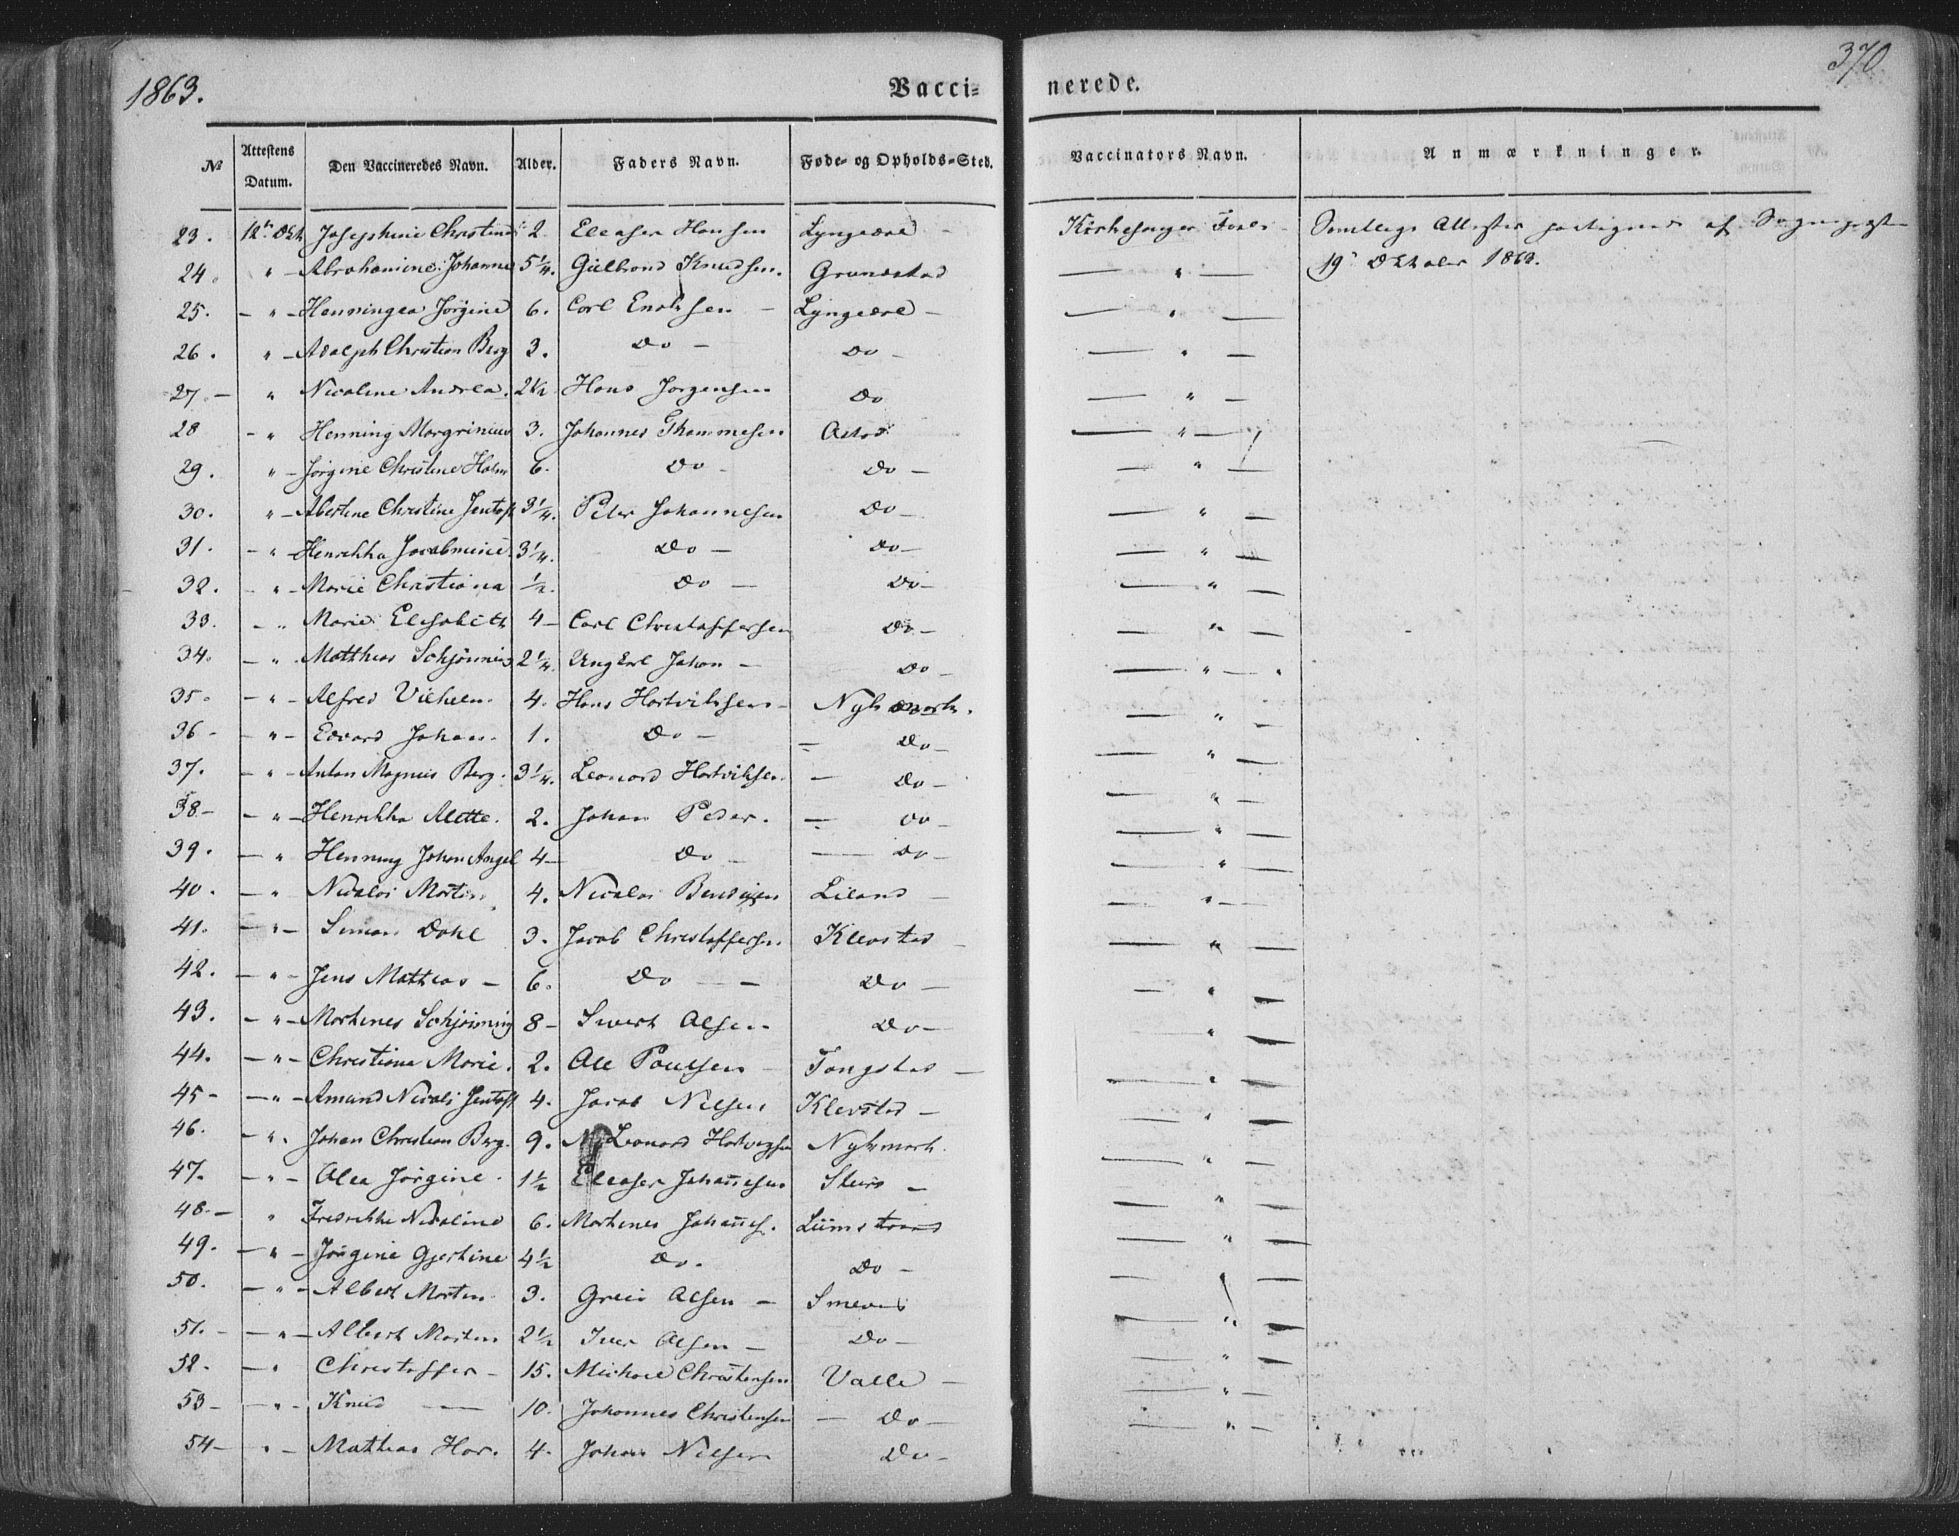 1863.
Vacci=
nerede.
370
№ Attestens Datum. Den Vaccineredes Navn. Alder. Faders Navn. Føde- og Opholds-Sted. Vaccinators Navn. Anmærkninger.
23. 12te Okt Josephine Christine 2 Eleaser Hansen Lyngedal - Kirkesanger
24. " - Abrahamine Johanne 5 1/4. Gulbrand Knudsen. Grundstad — " — 19' Oktober 1863.
25. - " - Henningea Jørgine 6. Carl Enoksen - Lyngedal - — " —
26. " - Adolph Christian Berg 3. Do - Do - — " —
27. - " Nicoline Andrea. 2 1/2 Hans Jørgensen Do — " —
28 - " Henning Margrinius 3. Johannes Thommesen — " —
29. " - Jørgine Christine Holm 6. Do - Do - — " —
30. " - Albertine Christine Jentoft 3 1/4. Peder Johannesen Do - — " —
31. - " - Henrikka Jacobmine 3 1/4. Do - Do - — " —
32. - " - Marie Christiana 1/2. Do - Do - — " —
33. - " Marie Elisabeth 4 - Carl Christoffersen Do - — " —
34. - " Matthias Schjønning 2 1/4. Johan - Do - — " —
35. - " - Alfred Vilhelm. 4. Hans Hartviksen - — " —
36 - - " - Edvard Johan. 1. Do - - Do - — " —
37. - " - Anton Magnus Berg. 3 1/4. Leonard Hartviksen - Do - — " —
38. - - " - Henrikka Mette. 2. Johan Peder. - Do - — " —
39. - " Henning Johan Angel 4 - Do - — Do - — " —
40. - " Nicolai Morten. 4. Nicolai Liland - — " —
41. - " - Simon Dahl 3. Jacob Christoffersen. Klevstad - — " —
42. - " - Jens Mathias - 6. Do - - Do - — " —
43. - " - Mortenes Schjønning 8 - Sivert Olsen Do - " —
44. - " - Christiane Marie. 2. Ole Paulsen - Tangstad - — " —
45 - - " - Amund Nicolai Jentoft 4. Jacob Nilsen Klevstad - "
46. - " . Johan Christian Berg. 9. Leonard Hartvigsen Nykmark. — " —
47. - " - Olea Jørgine. 1 1/2 Eleaser Johannesen Steiro - — " —
48. - " Fredrikke Nicoline 6. Mortenes Johannes. — " —
49. - " - Jørgine Gjertine 4 1/2 Do. Do - — " —
50. - " - Albert Morten 3. Olsen - — " —
51. - - " - Albert Morten 2 1/2 Iver Olsen - Do - — " —
52. - " Christoffer - 15. Michael Christensen Valle - — " —
53 - - " - Knud — 10. Johannes Christensen - Do - — " —
54 - " - Mathias 4. Johan Nilsen Do - — " —